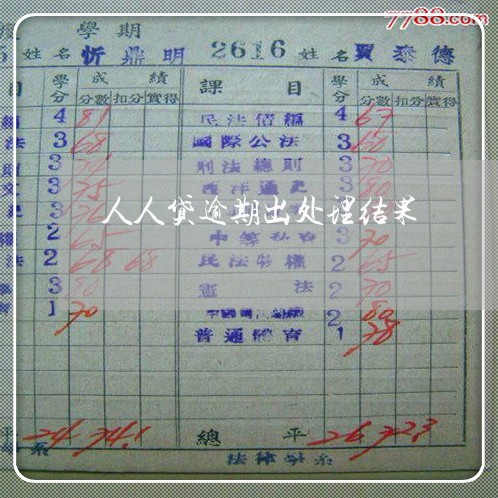 7788.com
學期
姓名 忻鼎明 2616 姓名 賈泰德
目 學分 成績 課目 學分 成績
分數 扣分 實得 分數 扣分 實得
4 81 民法債編 4 67
法 3 68 國際公法 3 60
3 刑法總則 3 70
3 75 西洋通史 3 80
人人贷逾期出处理结果
2 65 3 70
法 2 68 68 民法物權 2 65
3 80 憲法 2 70
1 70 2 80
普通體育 1 78
平 24 74.1 總平 26 72.3
系 法律學系